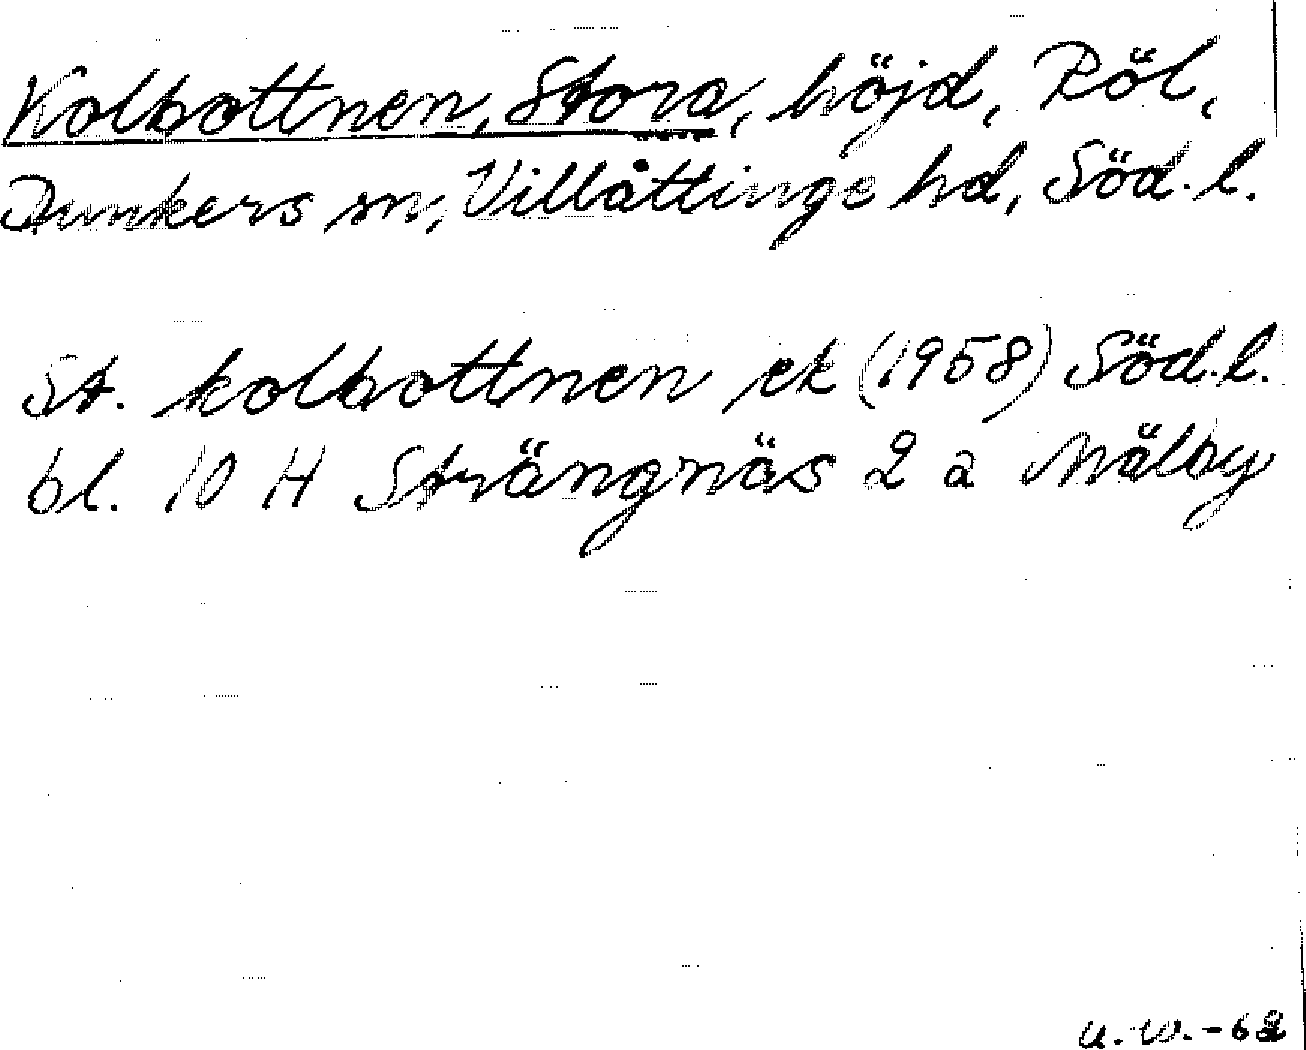 Kolbottnen, Stora, höjd, Röl,
Dunkers sn, Villåttinge hd, Söd. l.
St. kolbottnen ek (1958) Söd. l.
bl. 10 H Strängnäs 2 a Mälby
U. W. - 62